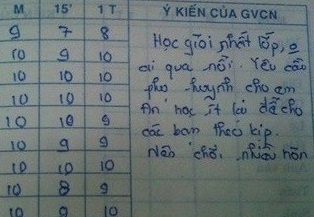 M 15' 1 T Ý KIẾN CỦA GVCN
9 7 8
10 9 10
10 10 10
10 10 10
10 10 9
10 9 9
10 10 10
10 8 9
10 9 10
Học giỏi nhất lớp, o
ai qua nổi. Yêu cầu
phụ huynh cho em
An học ít lại để cho
các bạn theo kịp.
Nên chơi nhiều hơn